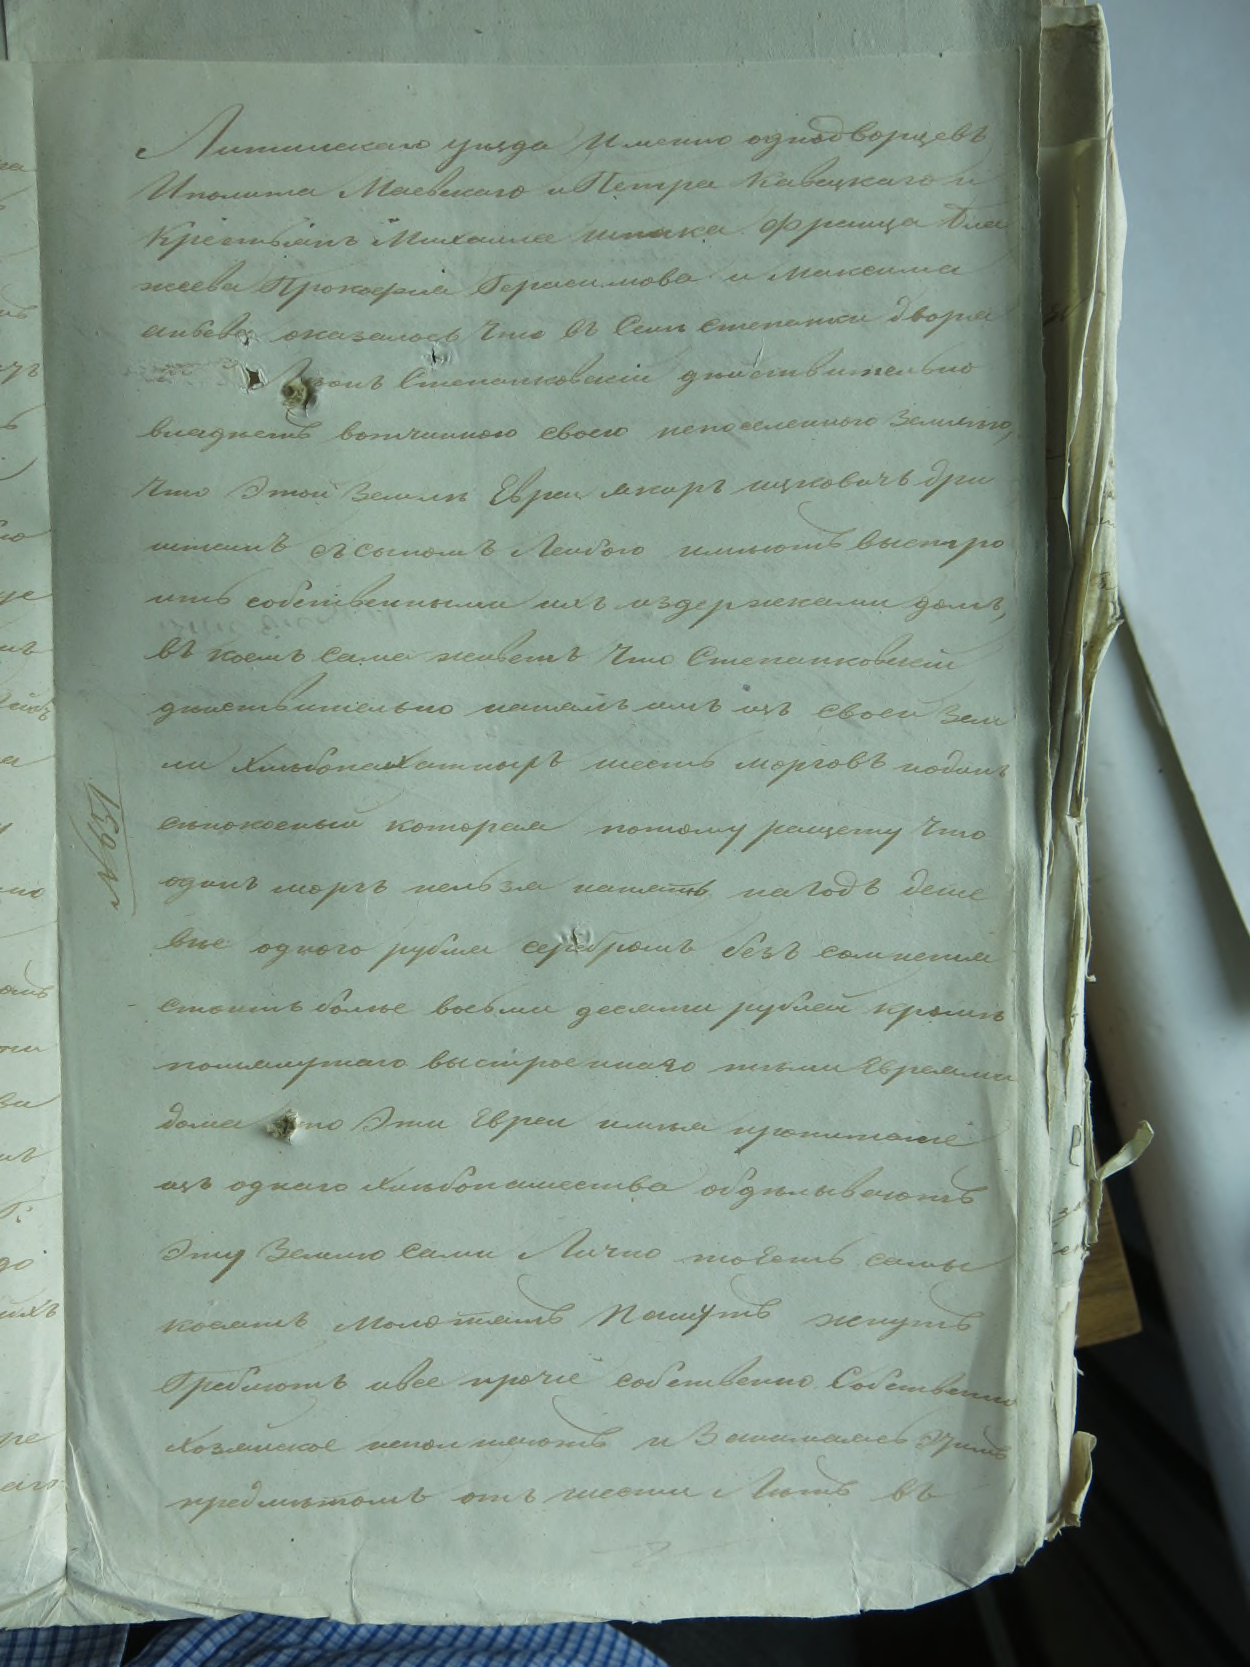 Литинскаго уѣзда Именно однодворцевъ
Иполита Маевскаго и Петра Кавецкаго и
Крестьянъ Михаила шпака Франца Бла
жеева Прокофія Герасимова и Максима
оказалось Что въ Селѣ Степанки дворя
Степанковскій дѣйствительно
владѣетъ вотчинною своею непоселенною Землею,
Что Этой Землѣ Евреи ицковичъ
съ сыномъ Лейбою имѣютъ выстро
итъ собственными ихъ издержками домъ,
въ коемъ Сами живетъ Что Степанковскій
дѣйствительно нанялъ имъ изъ своей Зем
ли Хлѣбопахатныхъ шесть морговъ
которая потому ращету Что
одинъ моргъ нельзя нанять на Годъ деше
вле одного рубля серебромъ безъ сомненія
стоитъ болѣе восьми десяти рублей кромѣ
помянутаго выстроеннаго тѣми Евреями
дома Что Эти Евреи имѣя пропитаніе
изъ однаго Хлѣбопашества обдѣлываютъ
Эту Землю Сами Лично тоесть сами
косятъ молотятъ Пашутъ жнутъ
Гребаютъ и все прочіе собственно Собственно
Хозяйское исполняютъ и Занимаясь Этимъ
предмѣтомъ отъ шести Лѣтъ въ